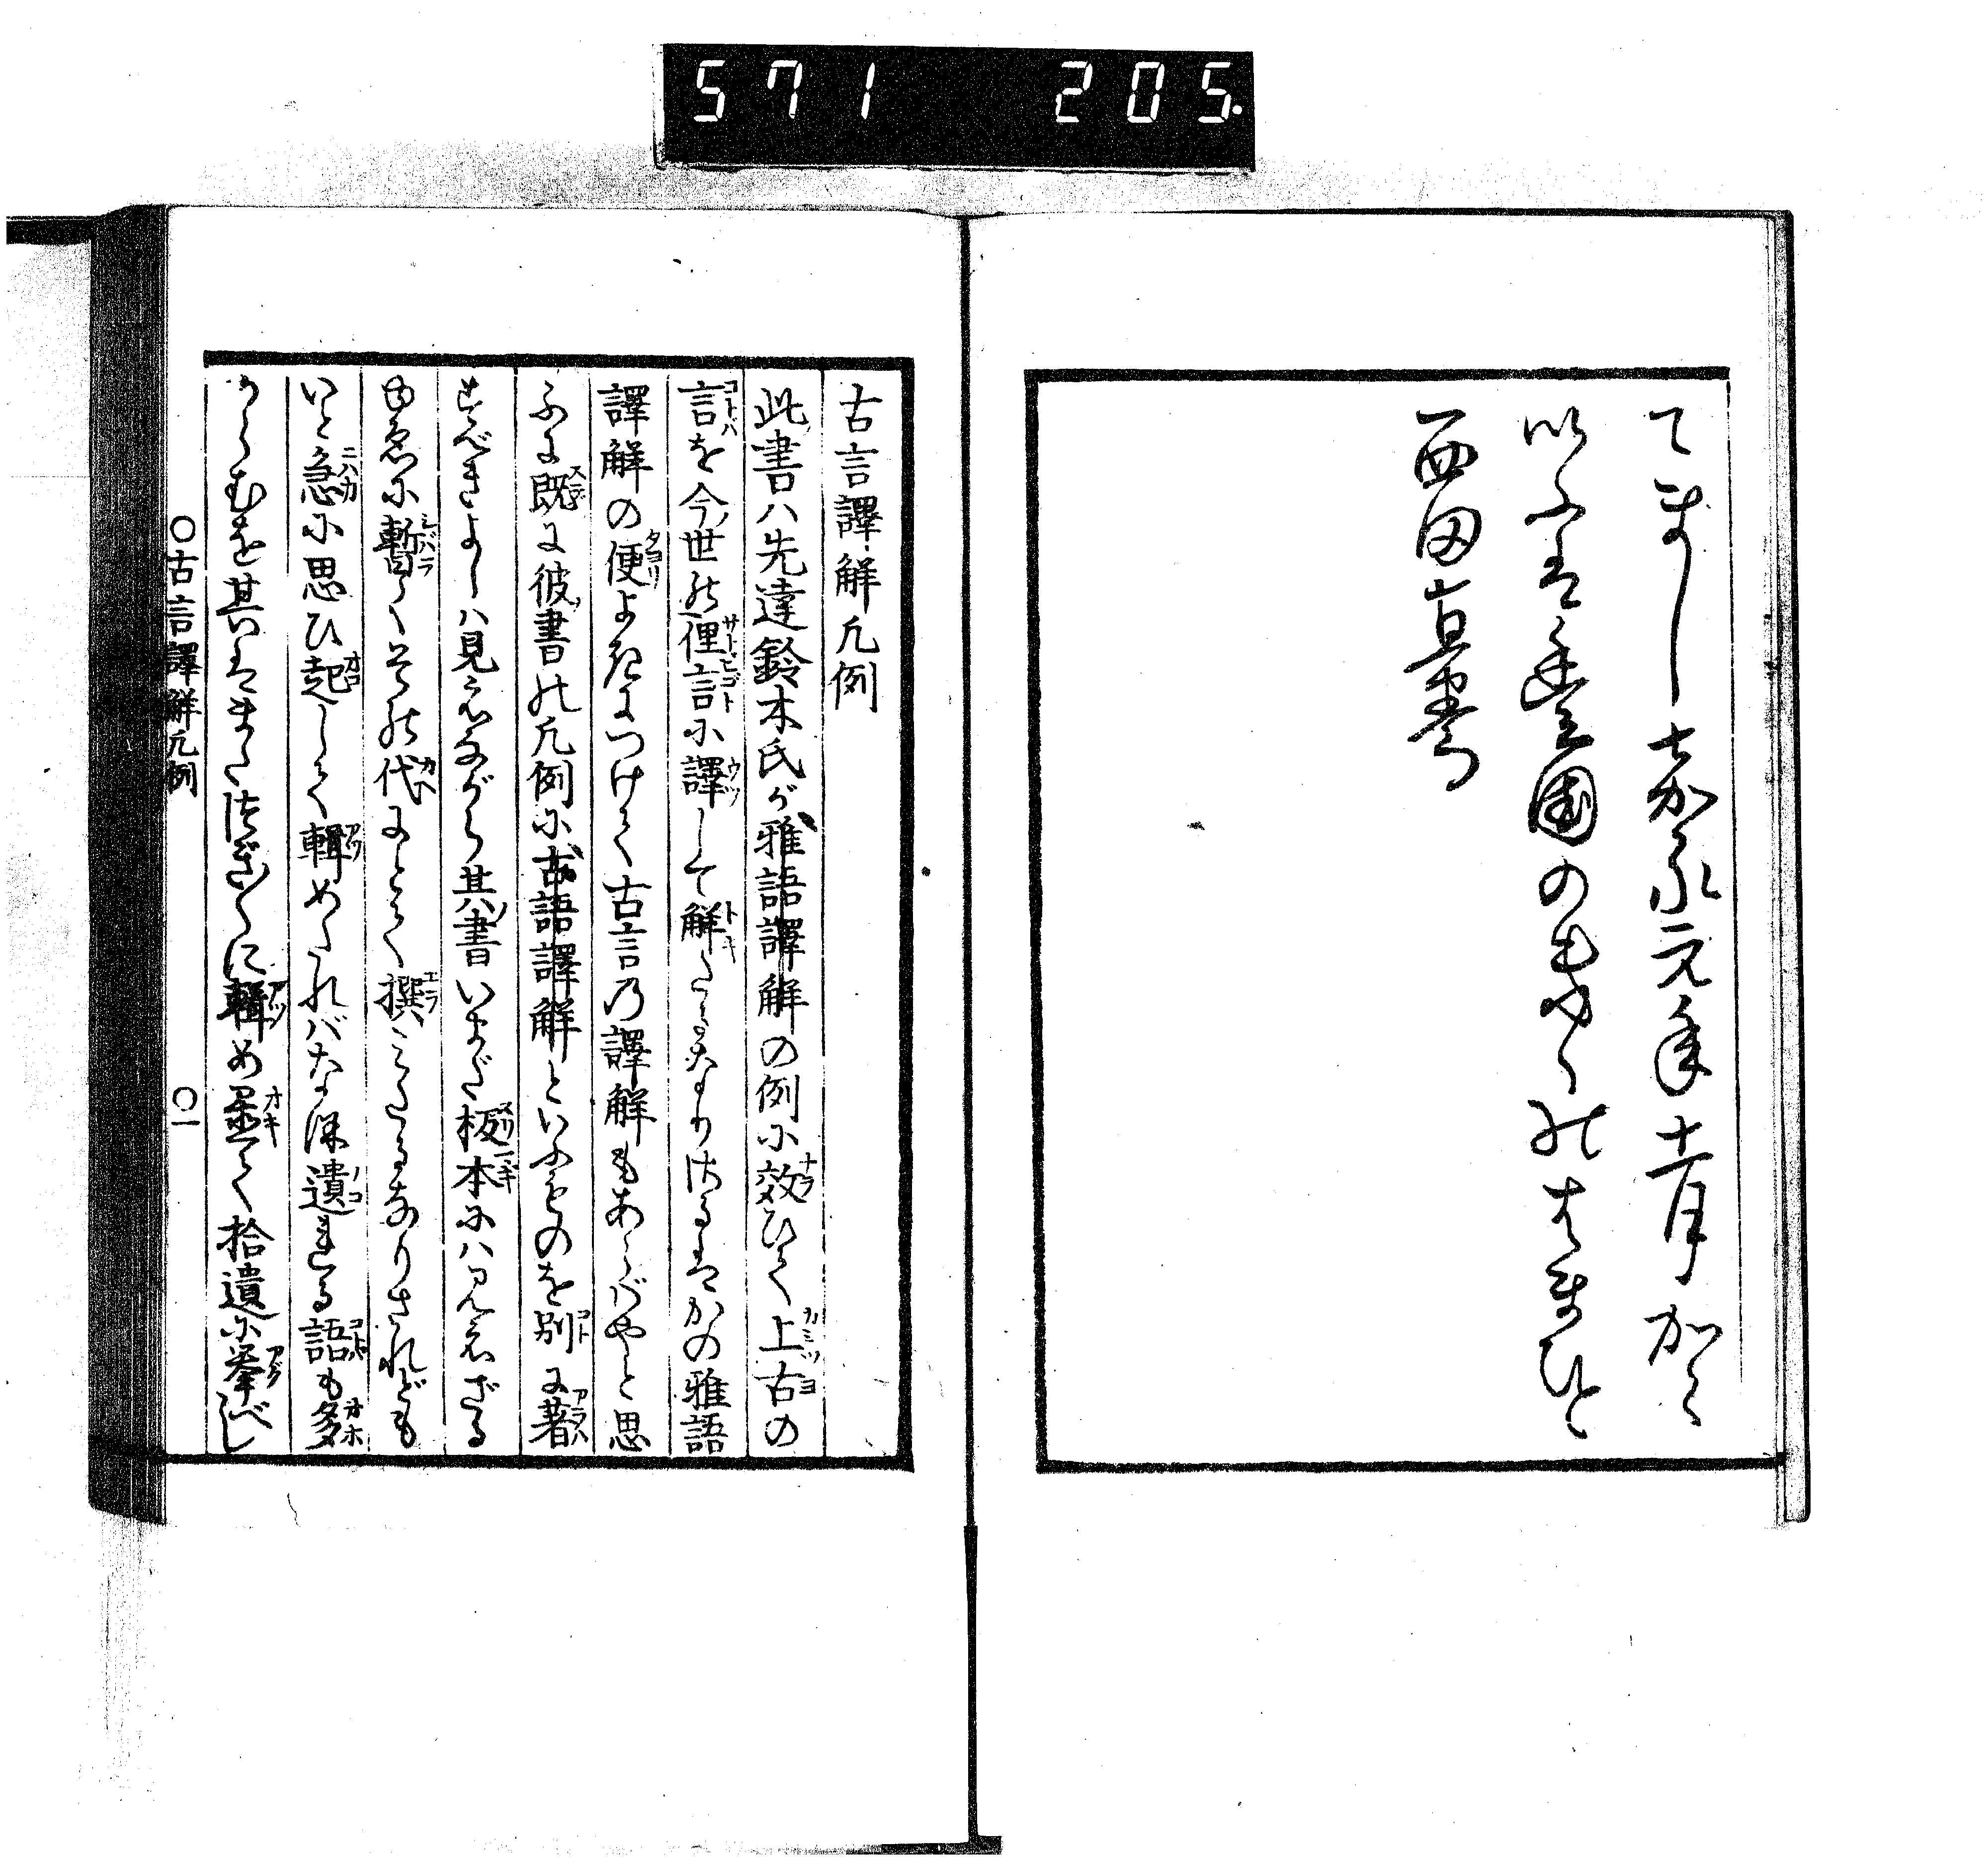 571 205.
てまし嘉永元年十一月かく
いふは
国の
西田直養
古言譯解凡例
此書ハ先達鈴木氏が雅語譯解の例に效ひて上古の
言を今ノ世の俚言に譯して解たるなりさるはかの雅語
譯解の便よきにつけて古言の譯解もあらバやと思
ふに既に彼ノ書の凡例に古語譯解といふものを別に著
すべきよしハ見えながら其ノ書いまだ板本にハ見えざる
ゆゑに暫くその代にとて撰ミたるなりされども
いと急に思ひ起して輯めたれバなほ遺れる語も多
からむを其はまたつぎ〱に輯め置て拾遺に挙べし
〇古言譯解凡例
〇一